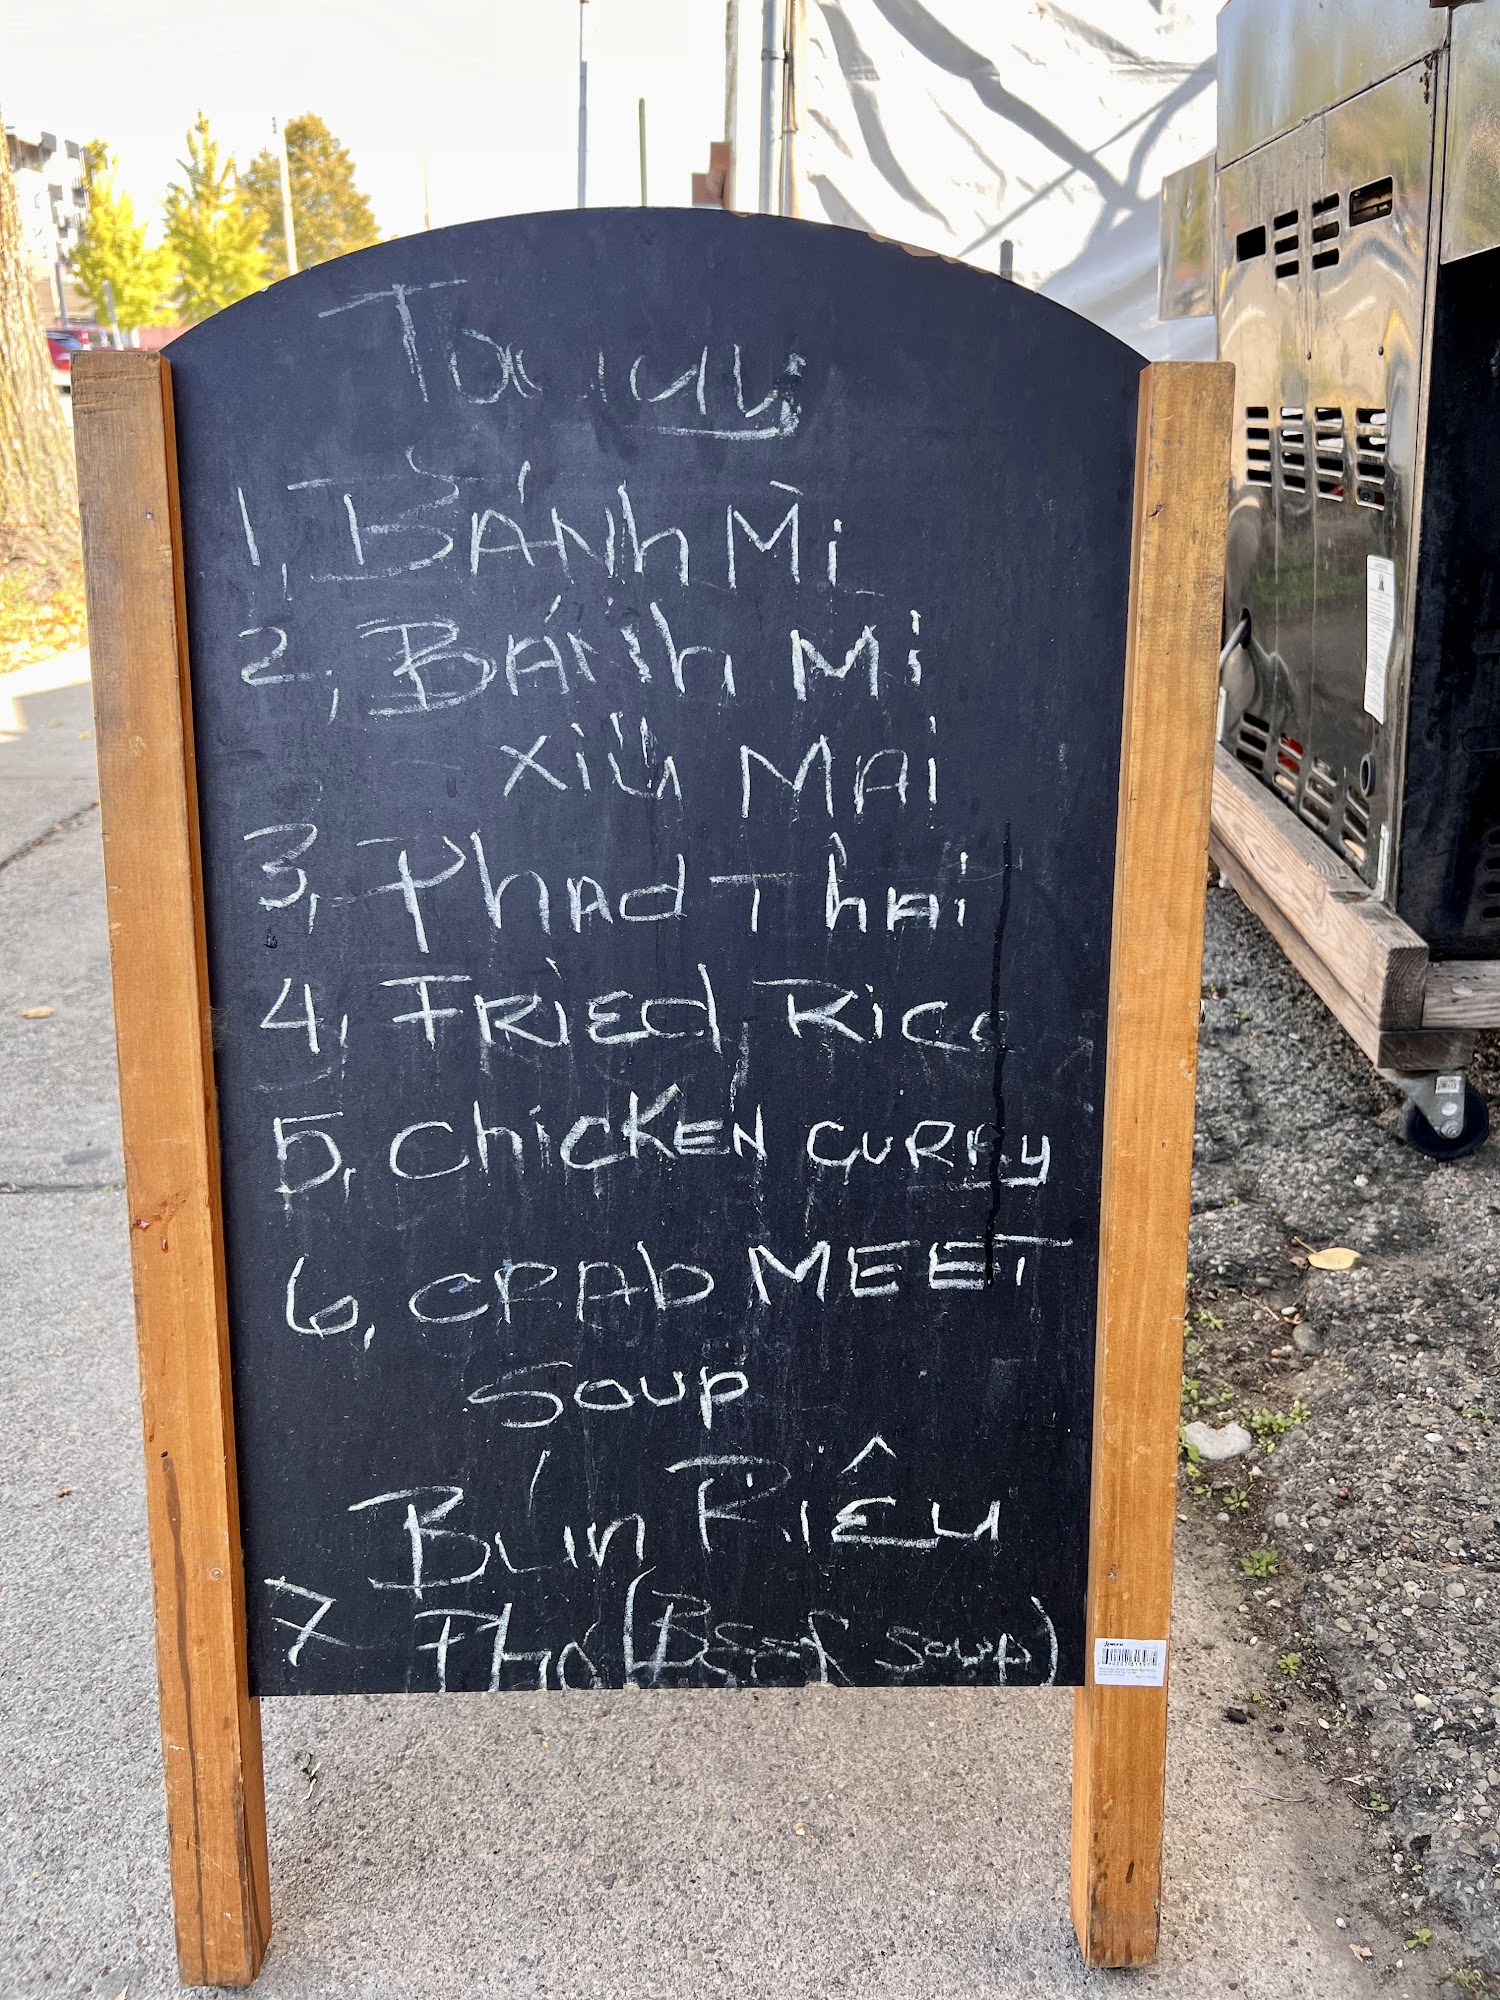 Today
1, BÁNh Mì
2, BÁNh Mì
XiU MAi
3, PhAd ThAi
4, FRiEd RicE
5, ChicKEN CURRy
6, CRAb MEET
Soup
BÚN RiÊu
7 Phở (BEEf Soup)